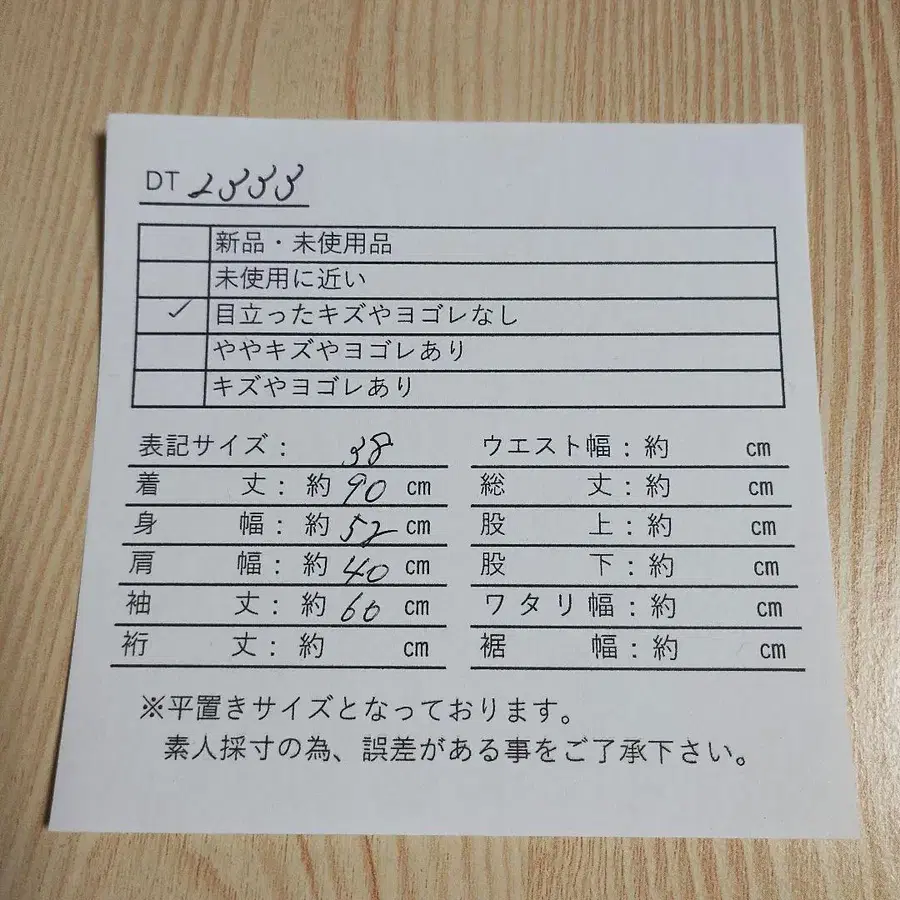 DT 2333
新品・未使用品
未使用に近い
✓ 目立ったキズやヨゴレなし
ややキズやヨゴレあり
キズやヨゴレあり
表記サイズ： 38
着丈：約 90 cm
身幅：約 52 cm
肩幅：約 40 cm
袖丈：約 60 cm
裄丈：約 cm
ウエスト幅：約 cm
総丈：約 cm
股上：約 cm
股下：約 cm
ワタリ幅：約 cm
裾幅：約 cm
※平置きサイズとなっております。
素人採寸の為、誤差がある事をご了承下さい。